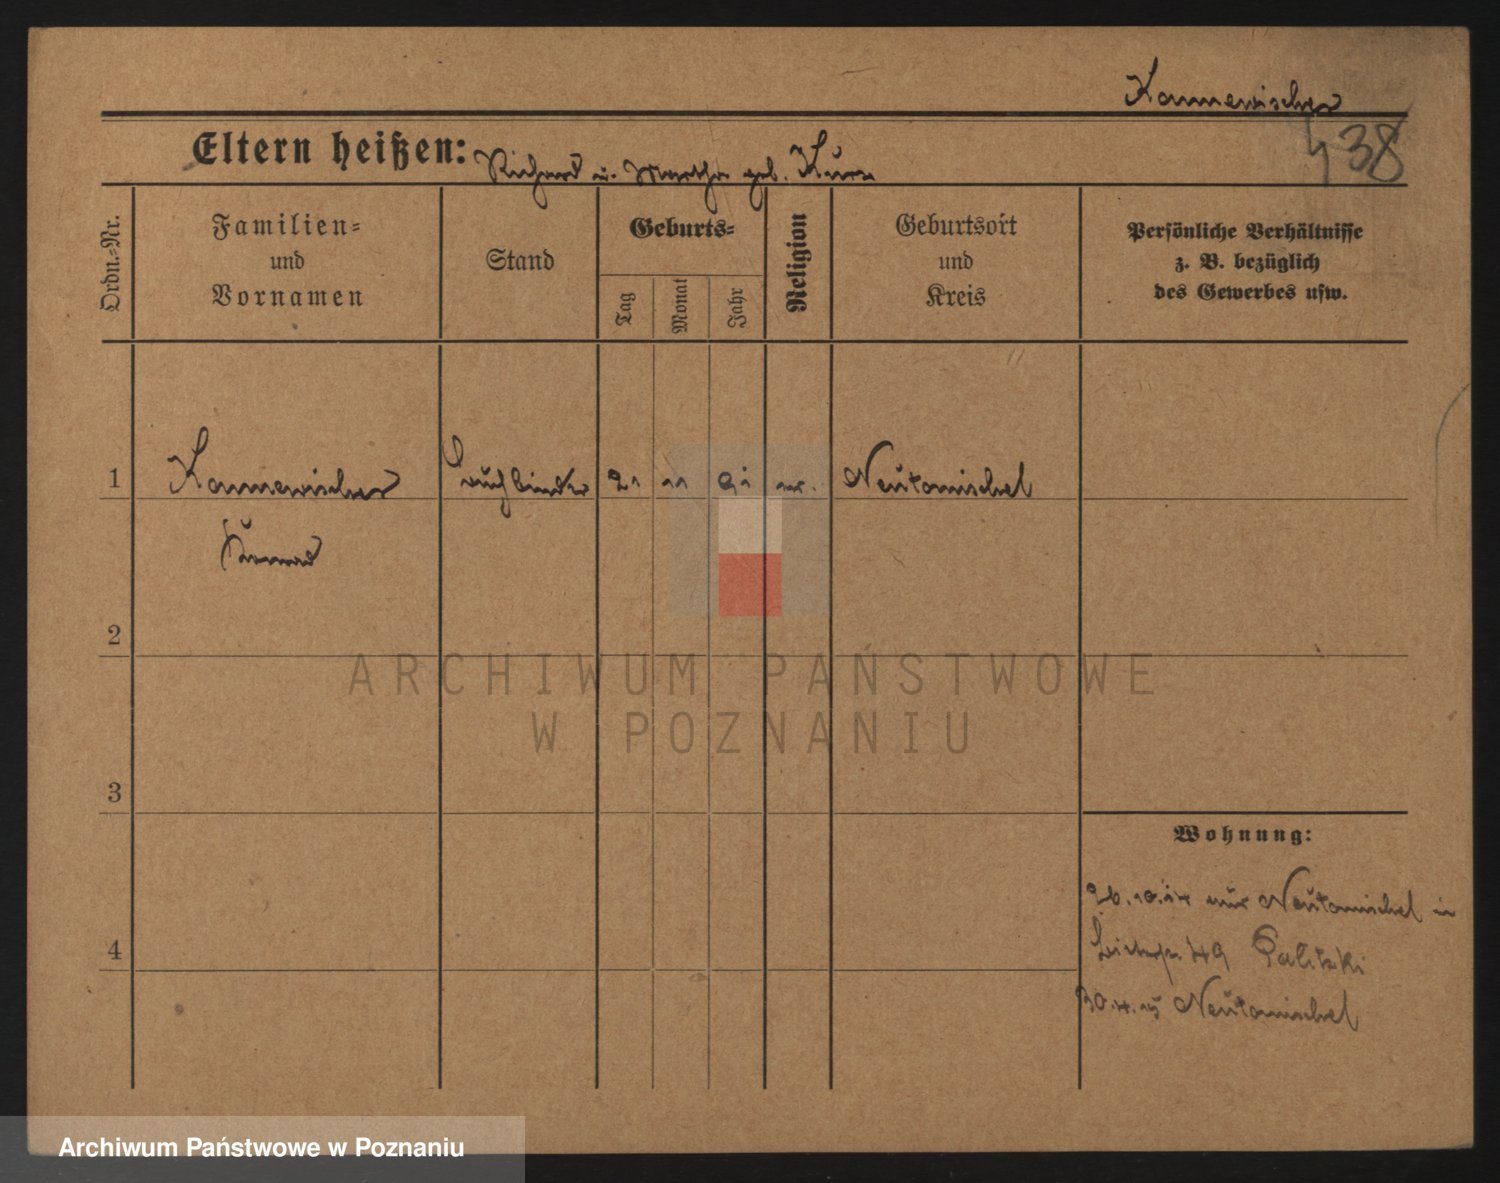 Kannewischer
438
Eltern heißen: Richard u. Martha geb. Kurz
Ordn.-Nr.
Familien-
und
Vornamen
Stand
Geburts-
Tag
Monat
Jahr
Religion
Geburtsort
und
Kreis
Persönliche Verhältnisse
z. B. bezüglich
des Gewerbes usw.
1 Kannewischer Buchbinder 21 11 91 ev. Neutomischel
Konrad
2
ARCHIWUM PAŃSTWOWE
W POZNANIU
3
Wohnung:
26.10.14 Neutomischel in
4
49
Neutomischel
Archiwum Państwowe w Poznaniu